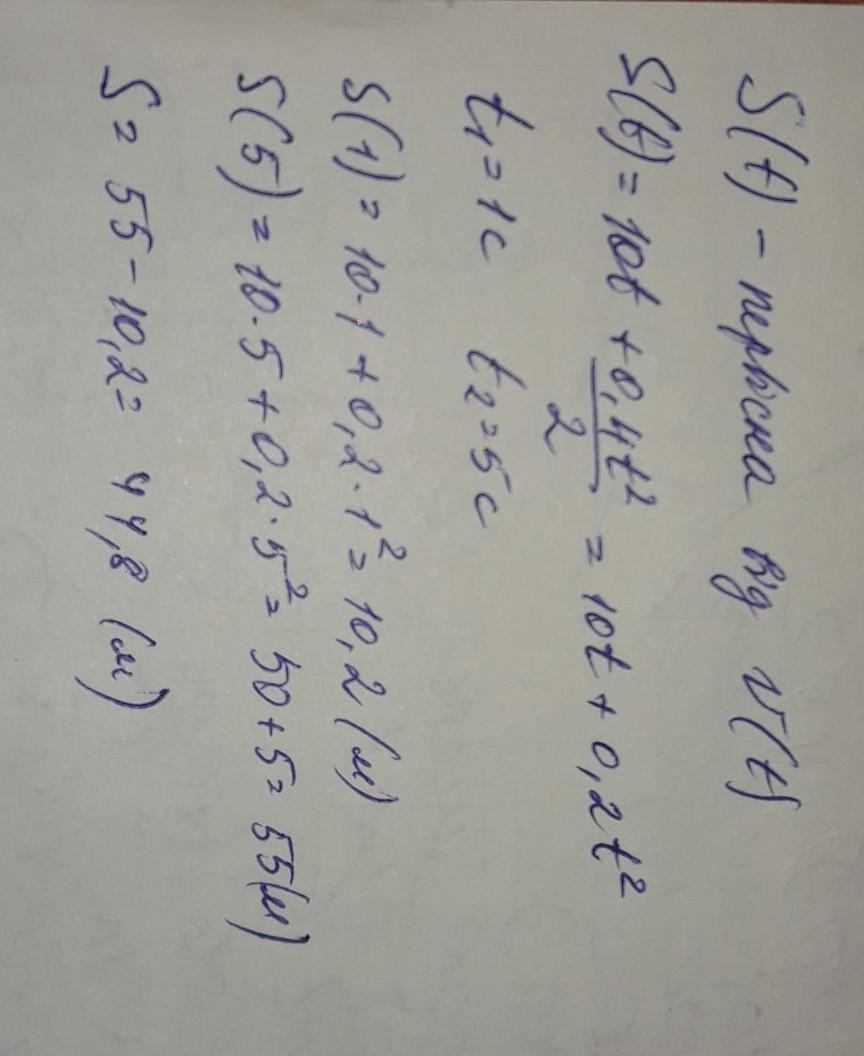 S(t) - первісна від v(t)
S(t) = 10t + 0,4t²/2 = 10t + 0,2t²
t₁ = 1c t₂ = 5c
S(1) = 10·1 + 0,2·1² = 10,2 (м)
S(5) = 10·5 + 0,2·5² = 50 + 5 = 55 (м)
S = 55 - 10,2 = 44,8 (м)